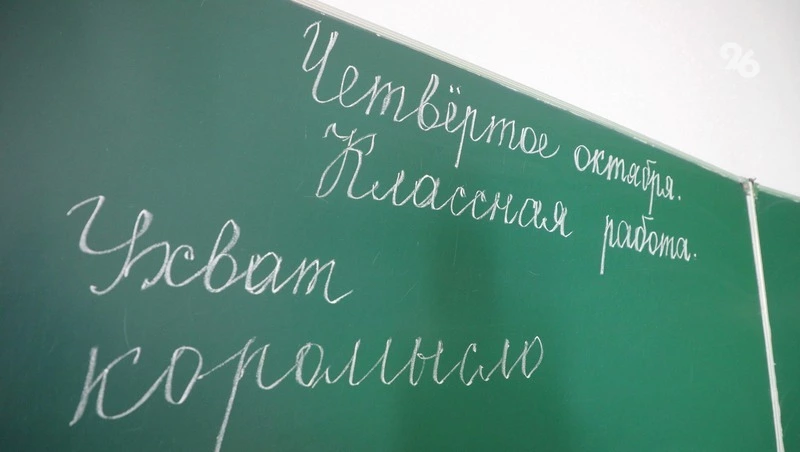 26
Четвёртое октября.
Классная работа.
Ухват
коромысло